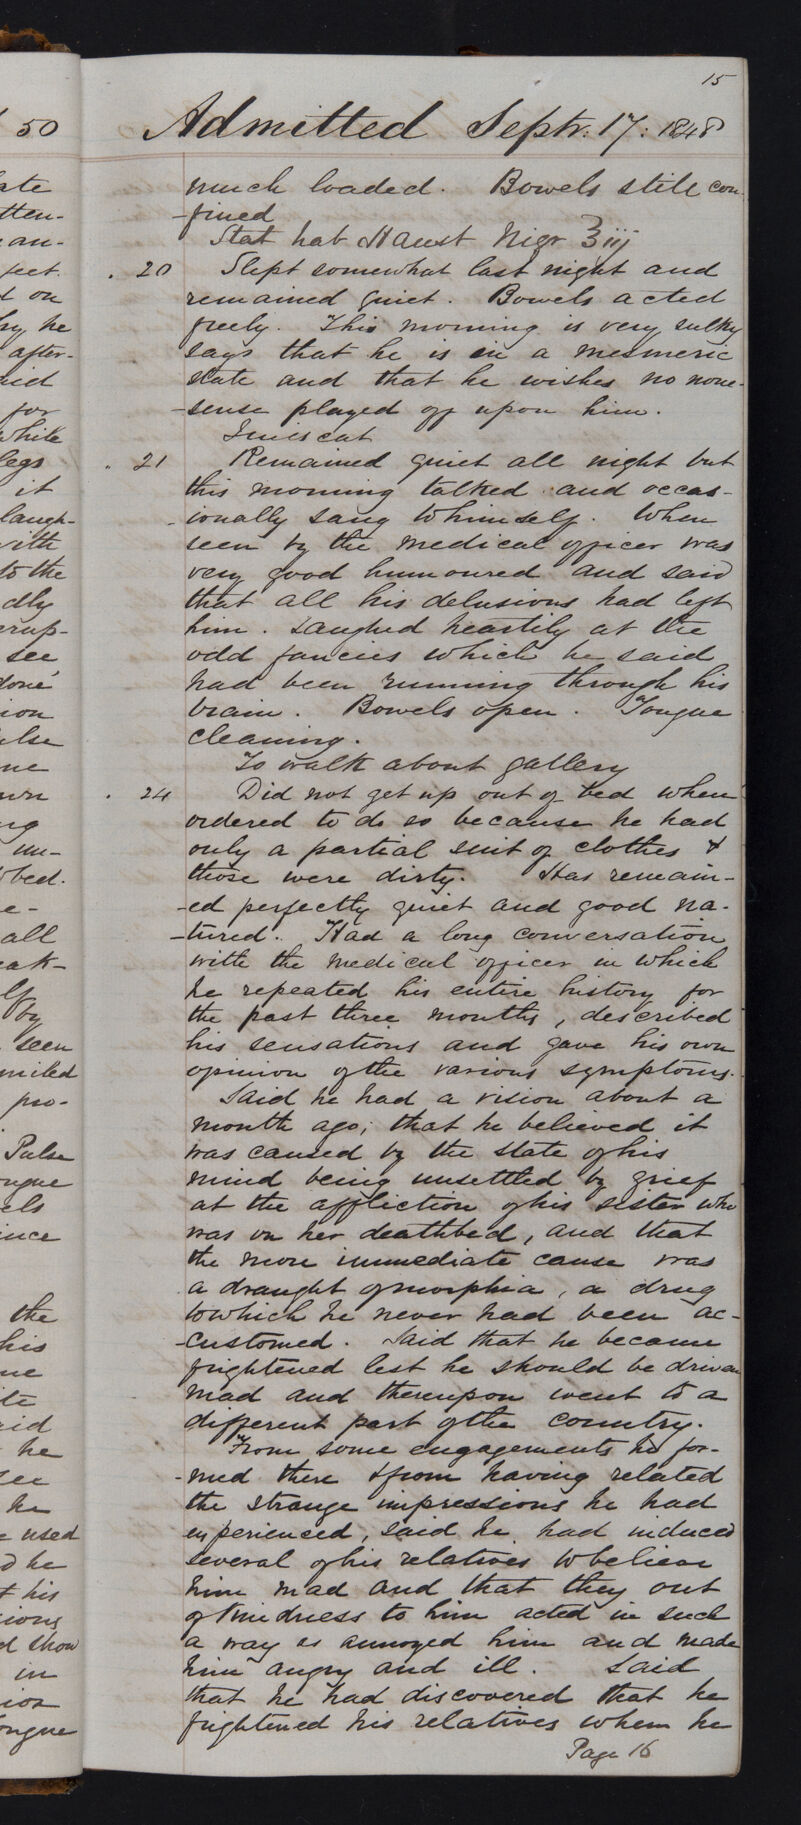 15
Admitted Septr. 17: 1848
much loaded. Bowels still con-
-fined
Stat hab Haust Nigr ℥iij
20 Slept somewhat last night and
remained quiet. Bowels acted
freely. This morning is very sulky
says that he is in a mesmeric
state and that he wishes no none-
-sense played off upon him.
21 Remained quiet all night but
this morning talked and occas-
-ionally sang to himself. When
seen by the medical officer was
very good humoured and said
that all his delusions had left
him. Laughed heartily at the
odd fancies which he said
had been running through his
brain. Bowels open. Tongue
cleaning.
To walk about gallery
24 Did not get up out of bed when
ordered to do so because he had
only a partial suit of clothes &
those were dirty. Has remain-
-ed perfectly quiet and good na-
-tured. Had a long conversation
with the medical officer in which
he repeated his entire history for
the past three months, described
his sensations and gave his own
opinion of the various symptoms.
Said he had a vision about a
month ago; that he believed it
was caused by the state of his
mind being unsettled by grief
at the affliction of his sister who
was on her deathbed, and that
the more immediate cause was
a draught of morphia, a drug
to which he never had been ac-
-customed. Said that he became
frightened lest he should be driven
mad and thereupon went to a
different part of the country.
From some engagements he for-
-med there & from having related
the strange impressions he had
experienced, said he had induced
several of his relatives to believe
him mad and that they out
of kindness to him acted in such
a way as annoyed him and made
him angry and ill. Said
that he had discovered that he
frightened his relatives when he
Page 16
50
ate
tten-
an-
feet.
on
he
after-
for
while
legs
it
laugh-
with
to the
dly
see
done
ion
me
un-
bed.
all
seen
smiled
pro-
Pulse
ongue
els
ince
the
his
he
he
used
he
his
show
in
ongue